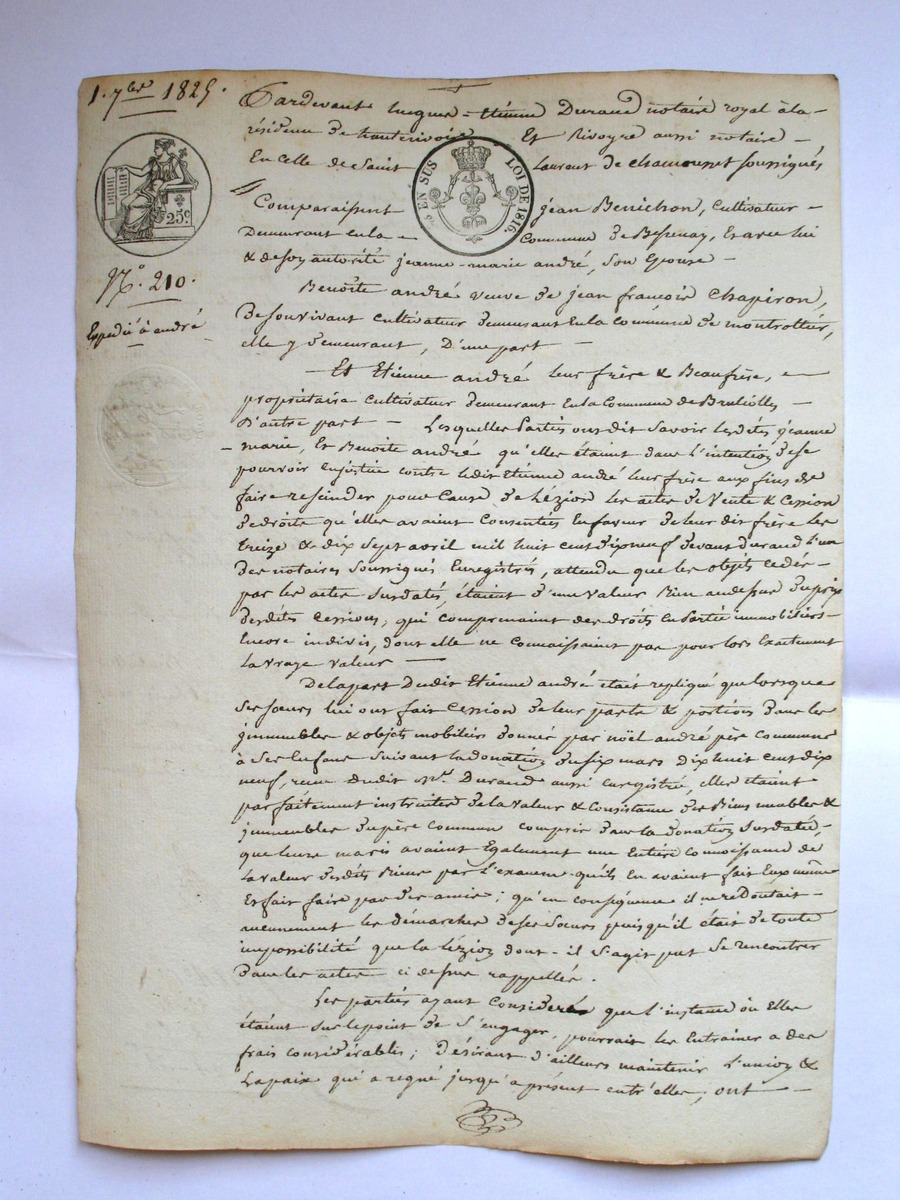 1. 7bre 1825.
Pardevant hugues-Etienne Durand notaire royal à la
résidence de hauterivoire Et Rivoyre aussi notaire
En Celle de Saint Laurent de chamousset soussignés
EN SUS LOI DE 1816.
25c
Comparaissent jean Benichon, Cultivateur
Demeurant en la Commune de Bessenay, Et avec lui
& de son autorité jeanne-marie andré, Son Epouse
N° 210.
Benoîte andré veuve de jean françois Chapiron,
Expedié à andré
De son vivant Cultivateur demeurant En la Commune de montrottier,
elle y demeurant, D'une part
Et Etienne andré leur frère & Beaufrère,
propriétaire cultivateur demeurant En la Commune de Bruliolles
D'autre part - Lesquelles Parties ont dit Savoir lesdites jeanne
-marie, Et Benoite andré qu'elles étaient dans l'intention de se
pourvoir En justice contre ledit Etienne andré leur frère aux fins de
faire rescinder pour Cause de Lézion les actes de Vente & Cession
de droits qu'elles avaient Consentés En faveur de leur dit frère les
treize & dix Sept avril mil huit cent dixneuf devant durand l'un
des notaires Soussignés Enregistrés, attendu que les objets cédés
par les actes Susdatés, étaient d'une valeur Bien audessus du prix
desdites Cessions, qui comprenaient des droits En partie immobiliers
Encore indivis, dont elle ne Connaissaient pas pour lors Exactement
la vraye valeur
De la part Dudit Etienne andré était repliqué que lorsque
Ses Soeurs lui ont fait Cession de leur parts & portions dans les
immeubles & objets mobiliers donnés par noël andré père Commun
à Ses Enfans suivant la donation du six mars dix huit cent dix
neuf, reçue dudit Me. Durand aussi Enregistrée, elles étaient
parfaitement instruites de la valeur & Consistance des Biens meubles &
immeubles du père Commun compris dans la donation Susdatée,
que leurs maris avaient Egalement une Entière Connoissance de
la valeur desdits Biens par l'examen qu'ils En avaient fait Eux même
Et fait faire par des amis; qu'en conséquence il ne redoutait
aucunement les démarches de ses Soeurs puisqu'il était de toute
impossibilité que la lézion dont-il S'agit put Se rencontrer
Dans les actes ci dessus rappellés.
Les parties ayant Considéré que l'instance où Elles
étaient Sur le point de S'engager, pourrait les Entrainer a des
frais considérables; Désirant d'ailleurs maintenir L'union &
La paix qui a regné jusqu'a présent entr'elles, ont